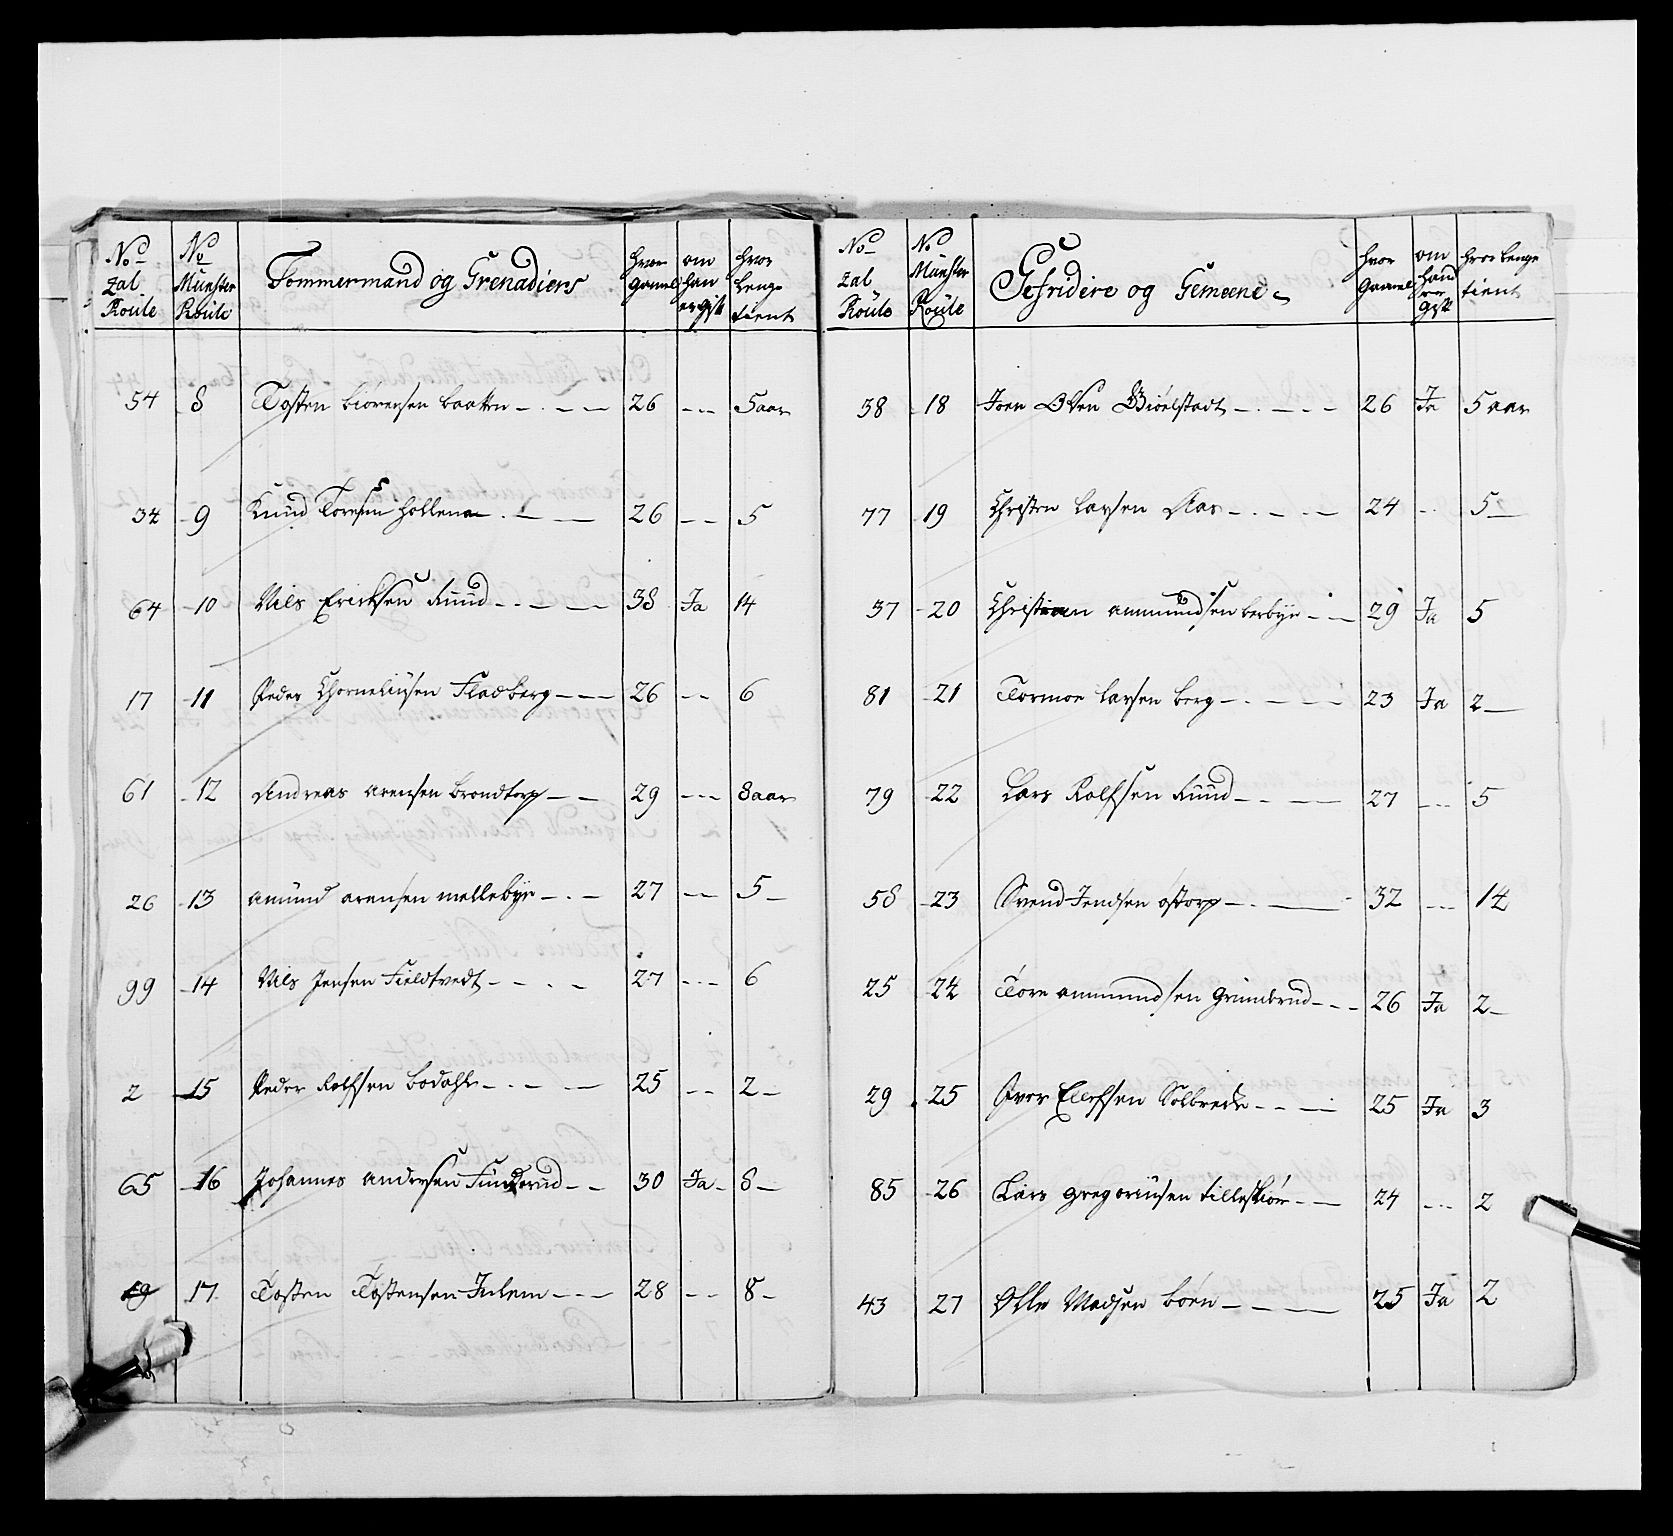 No zal Roule | No Munster Roule | Tommermand og Grenadiers | hvor gamel | om han er gift | hvor lenge tient
54 | 8 | Tosten Biørensen baatten | 26 | -- | 5 aar
34 | 9 | Knud Toresen Hollena | 26 | -- | 5
64 | 10 | Nils Ericksen Ruud | 38 | Ja | 14
17 | 11 | Peder Chorneliusen Fladberg | 26 | -- | 6
61 | 12 | Andreas arensen brondtorp | 29 | --- | 8 aar
26 | 13 | Amund arensen mellebye | 27 | -- | 5
99 | 14 | Nils Jensen Fieldtvedt | 27 | --- | 6
2 | 15 | Peder Rolfsen bodahl | 25 | -- | 2
65 | 16 | Johannes andersen Funderud | 30 | Ja | 8
19 | 17 | Tosten Tostensen Julem | 28 | -- | 8
No zal Roule | No Munster Roule | Gefridere og Gemeene | hvor gammel | om hand er gift | hvor lenge tient
38 | 18 | Joen Olsen Giøelstadt | 26 | Ja | 5 aar
77 | 19 | Christen larsen Aas | 24 | -- | 5
37 | 20 | Christian ammundsen berbye | 29 | Ja | 5
81 | 21 | Tormoe larsen berg | 23 | Ja | 2
79 | 22 | Lars Rolfsen Ruud | 27 | --- | 5
58 | 23 | Svend Jensen østorp | 32 | --- | 14
25 | 24 | Tore ammundsen Grimsrud | 26 | Ja | 2
29 | 25 | Iver Ellefsen Solbrecke | 25 | Ja | 3
85 | 26 | Lars gregoriusen tilleskiør | 24 | --- | 2
43 | 27 | Olle Madsen böen | 25 | Ja | 2